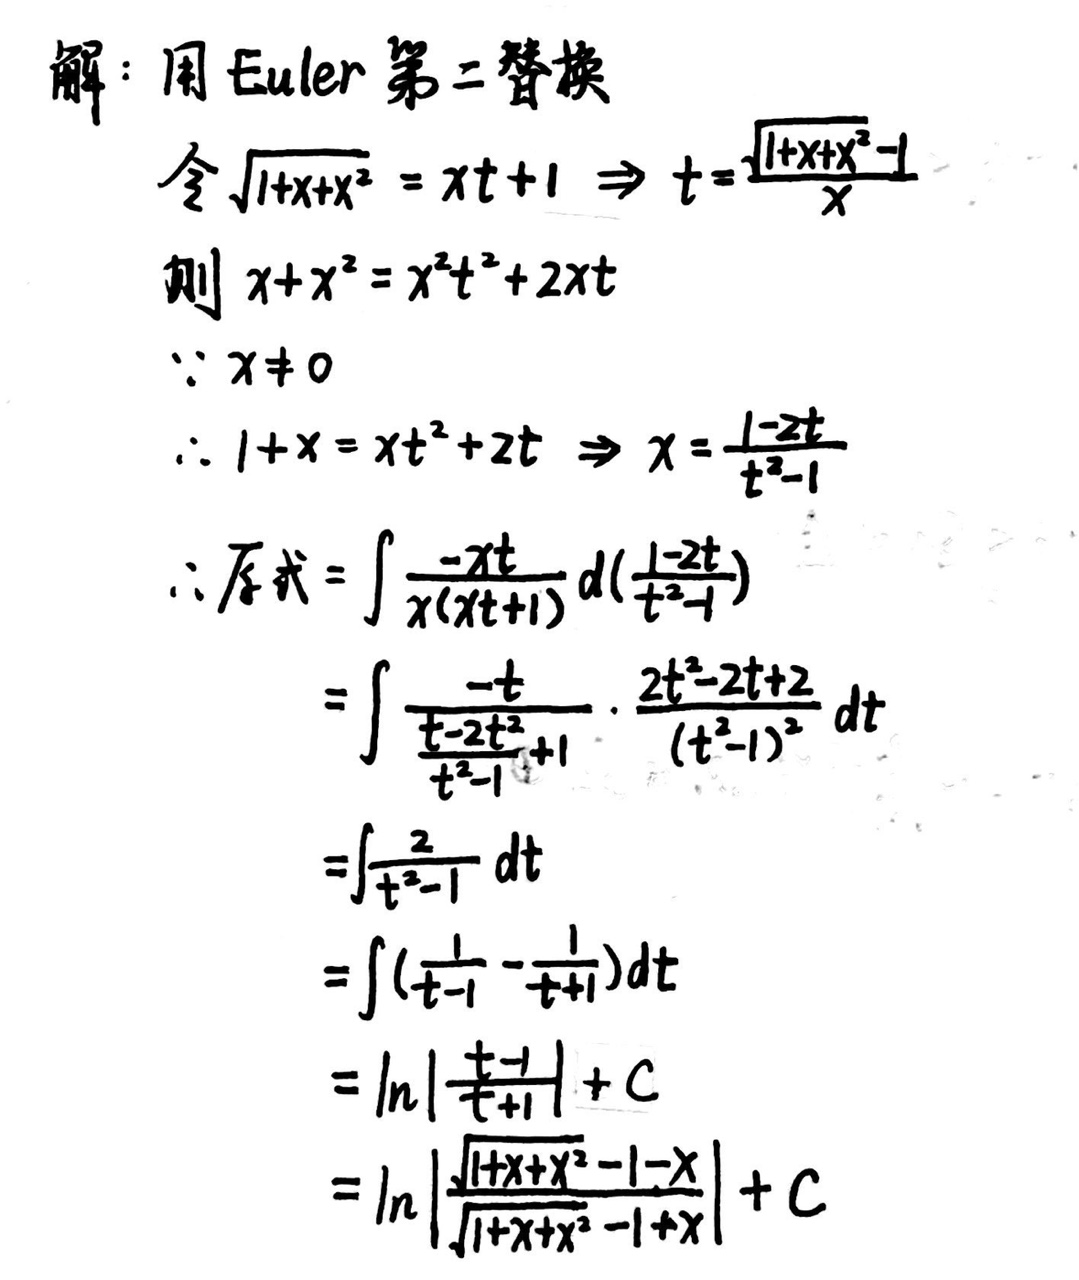 解：用 Euler 第二替换
令 √(1+x+x²) = xt+1 ⇒ t = (√(1+x+x²) -1)/x
则 x+x² = x²t²+2xt
∵ x≠0
∴ 1+x = xt²+2t ⇒ x = (1-2t)/(t²-1)
∴ 原式 = ∫ (-xt)/(x(xt+1)) d((1-2t)/(t²-1))
= ∫ (-t)/((t-2t²)/(t²-1) +1) · (2t²-2t+2)/(t²-1)² dt
= ∫ 2/(t²-1) dt
= ∫ (1/(t-1) - 1/(t+1)) dt
= ln|(t-1)/(t+1)| + C
= ln|(√(1+x+x²) -1-x)/(√(1+x+x²) -1+x)| + C